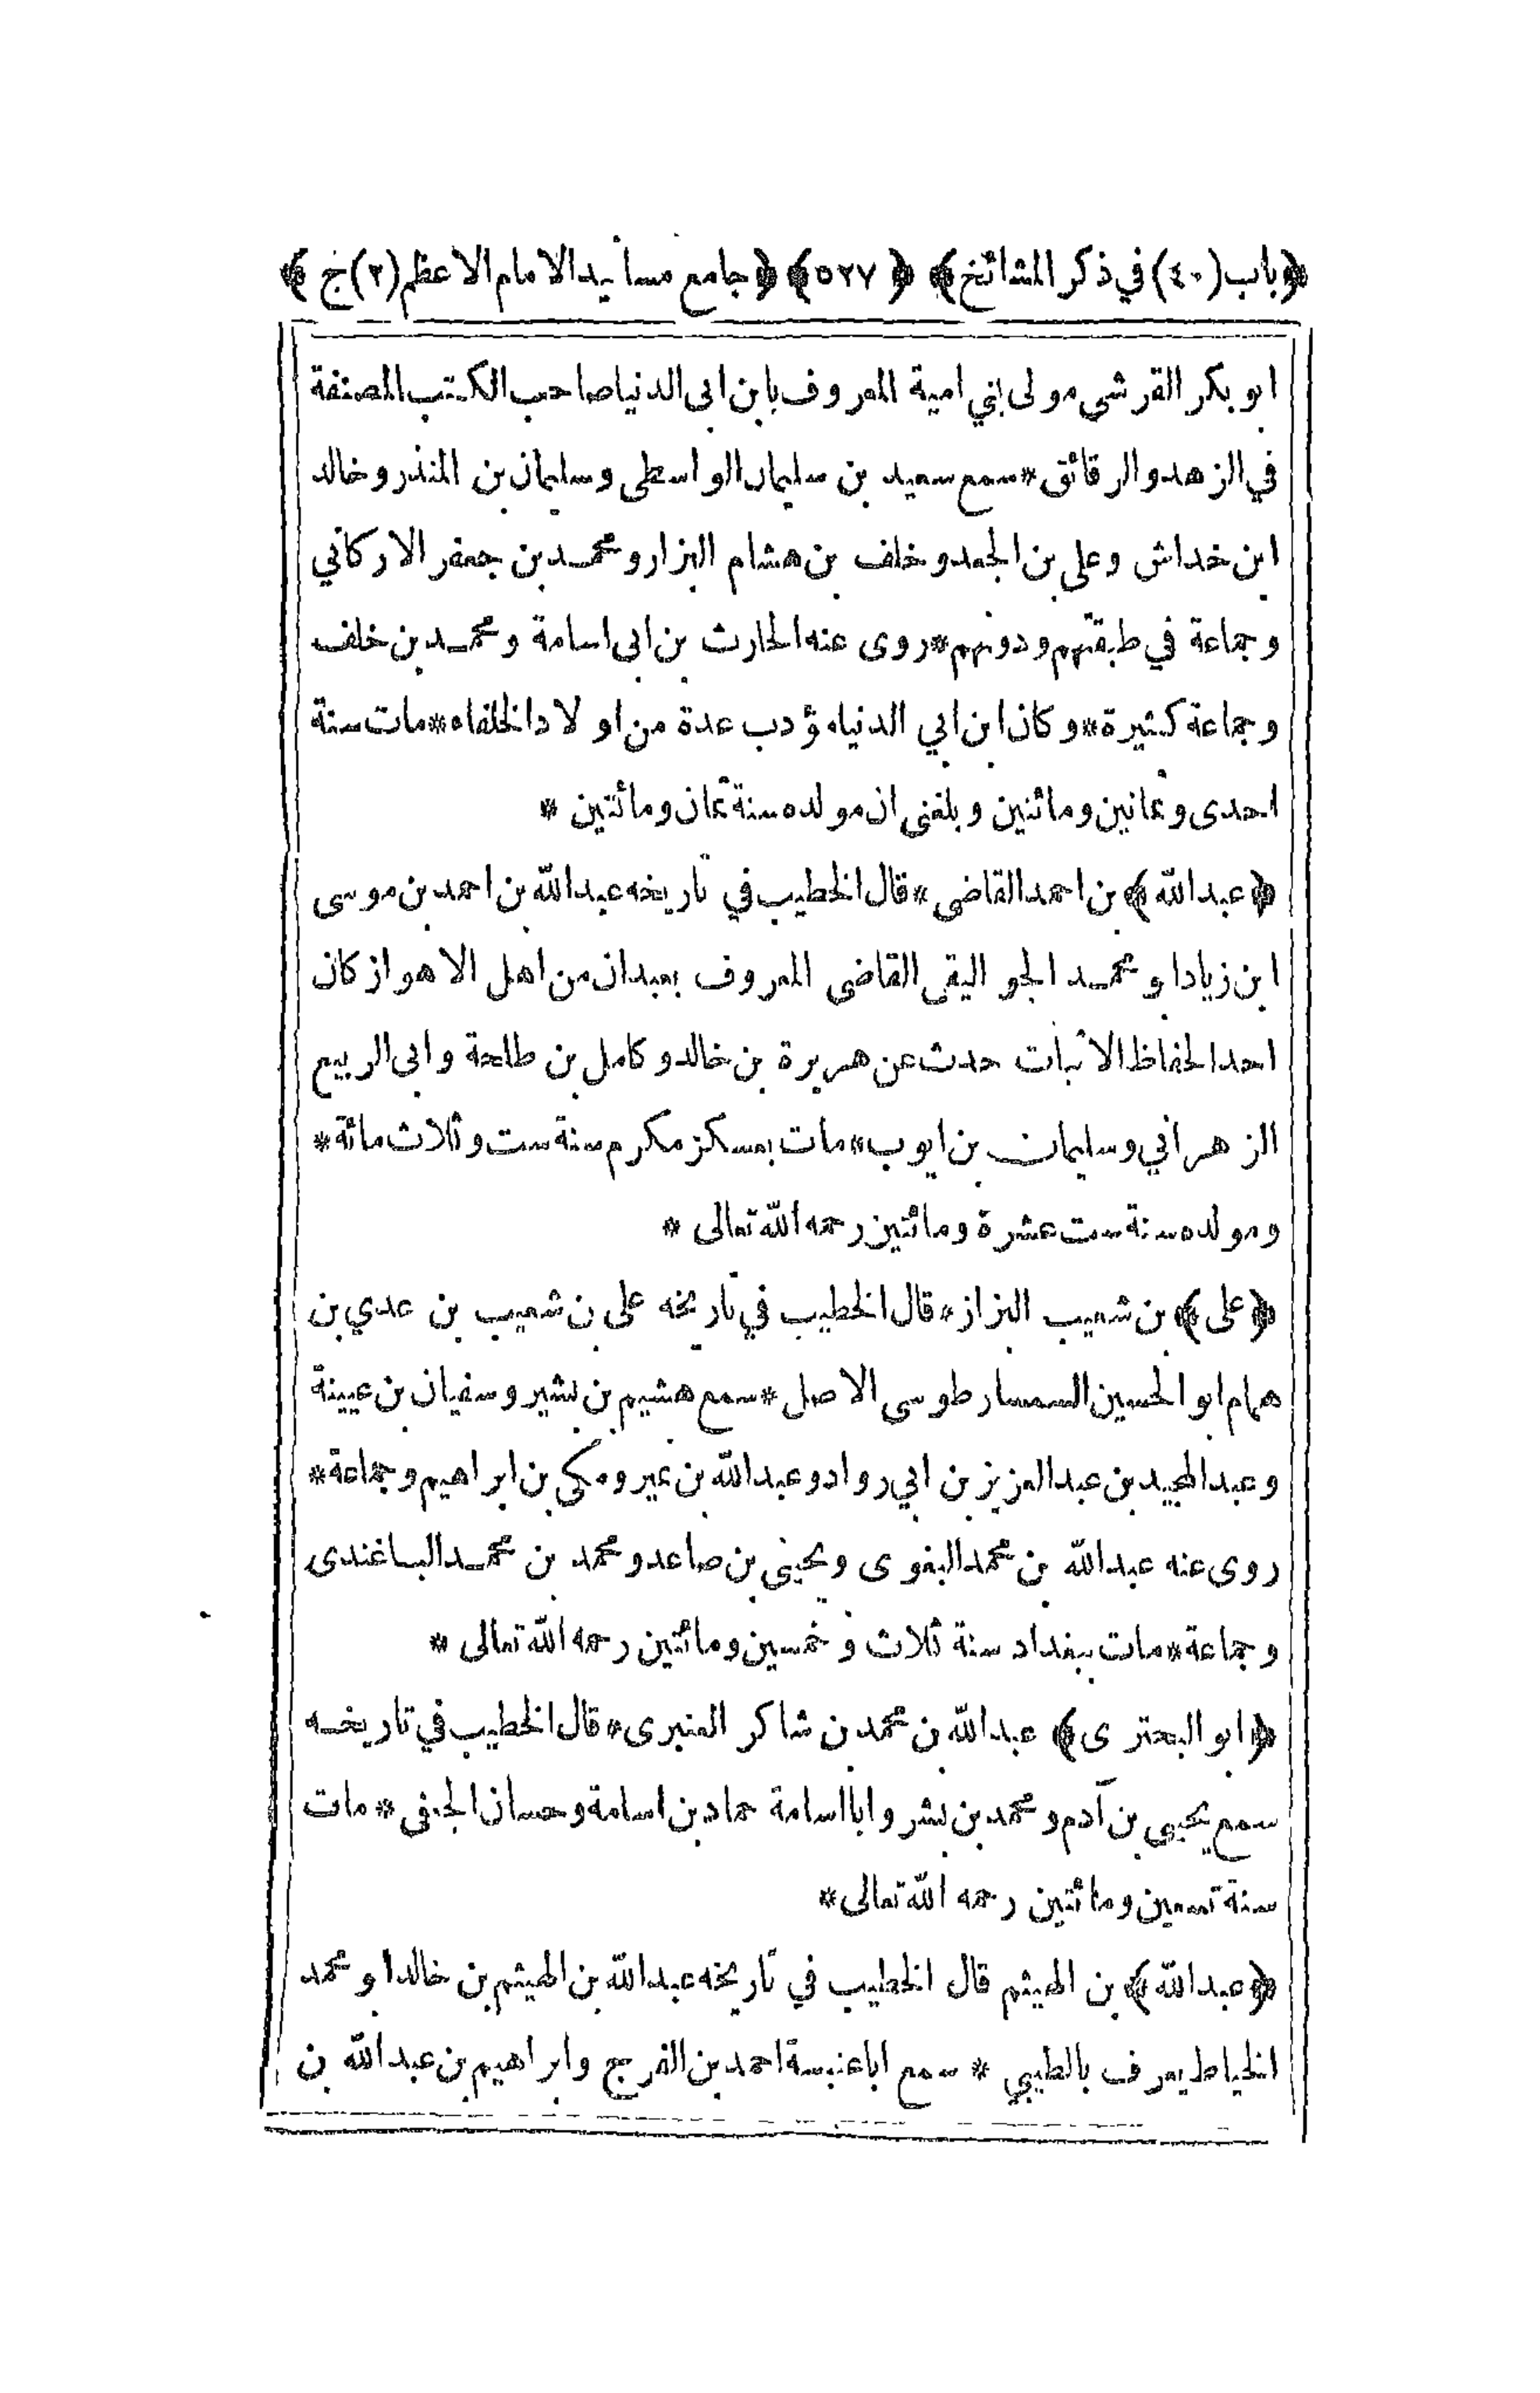 ﴿باب (٤٠) في ذكر المشائخ﴾ ﴿٥٢٧﴾ ﴿جامع مسانيد الامام الاعظم (٢) ج﴾
ابو بكر القرشي مولى بني امية المعروف بابن ابى الدنيا صاحب الكتب المصنفة
في الزهد والرقائق * سمع سعيد بن سليمان الواسطى وسليمان بن المنذر وخالد
ابن خداش وعلى بن الجعد وخلف بن هشام البزار ومحمد بن جعفر الاركاني
وجماعة في طبقتهم ودونهم * روى عنه الحارث بن ابى اسامة ومحمد بن خلف
وجماعة كثيرة * وكان ابن ابي الدنيا مؤدب عدة من اولاد الخلفاء * مات سنة
احدى وثمانين ومائتين وبلغني ان مولده سنة ثمان ومائتين *
﴿عبد الله﴾ بن احمد القاضى * قال الخطيب في تاريخه عبد الله بن احمد بن موسى
ابن زياد ابو محمد الجواليقى القاضى المعروف بعبدان من اهل الاهواز كان
احد الحفاظ الاثبات حدث عن هريرة بن خالد وكامل بن طلحة وابى الربيع
الزهراني وسليمان بن ايوب * مات بعسكر مكرم سنة ست وثلاث مائة *
ومولده سنة ست عشرة ومائتين رحمه الله تعالى *
﴿على﴾ بن شعيب البزاز * قال الخطيب في تاريخه على بن شعيب بن عدي بن
همام ابو الحسين السمسار طوسى الاصل * سمع هشيم بن بشير وسفيان بن عيينة
وعبد المجيد بن عبد العزيز بن ابي رواد وعبد الله بن نمير ومكى بن ابراهيم وجماعة *
روى عنه عبد الله بن محمد البغوى ويحيى بن صاعد ومحمد بن محمد الباغندى
وجماعة * مات ببغداد سنة ثلاث وخمسين ومائتين رحمه الله تعالى *
﴿ابو البحترى﴾ عبد الله بن محمد بن شاكر العنبرى * قال الخطيب في تاريخه
سمع يحيى بن آدم ومحمد بن بشر وابا اسامة حماد بن اسامة وحسان الجعفى * مات
سنة تسعين ومائتين رحمه الله تعالى *
﴿عبد الله﴾ بن الهيثم قال الخطيب في تاريخه عبد الله بن الهيثم بن خالد ابو محمد
الخياط يعرف بالطيبي * سمع ابا عنبسة احمد بن الفرج وابراهيم بن عبد الله بن